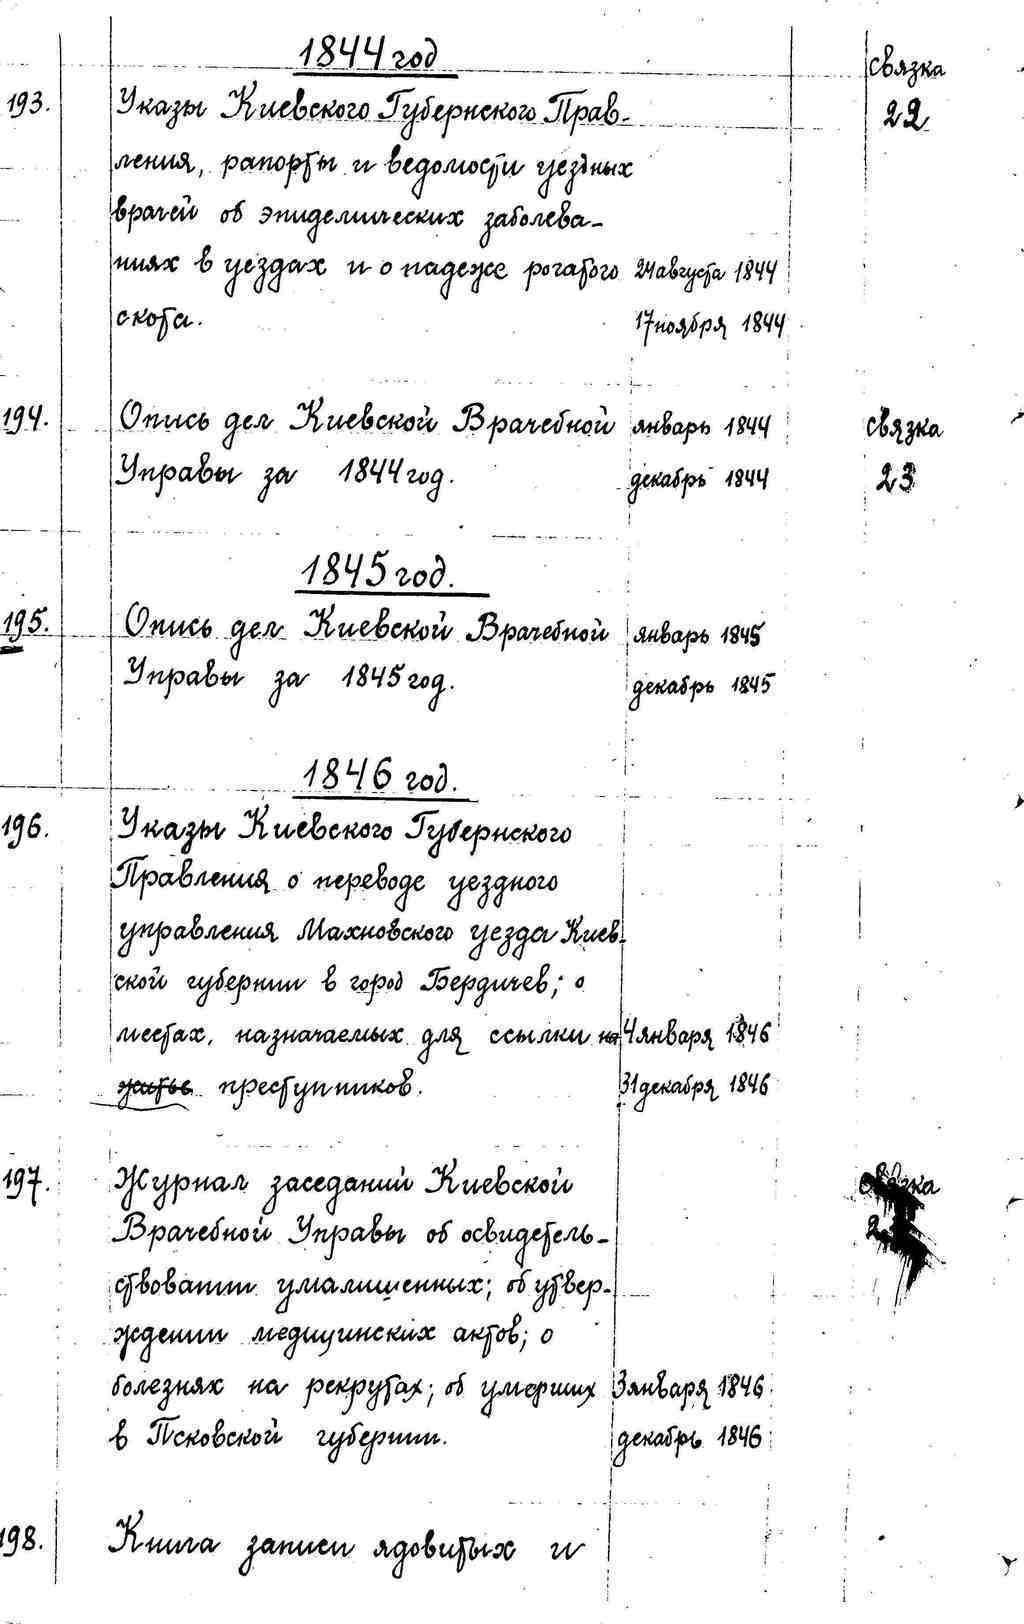 1844 год
связка
193. Указы Киевского Губернского Прав- 22
ления, рапорты и ведомости уездных
врачей об эпидемических заболева-
ниях в уездах и о падеже рогатого 24 августа 1844
скота. 17 ноября 1844
194. Опись дел Киевской Врачебной январь 1844 связка
Управы за 1844 год. декабрь 1844 23
1845 год.
195. Опись дел Киевской Врачебной январь 1845
Управы за 1845 год. декабрь 1845
1846 год.
196. Указы Киевского Губернского
Правления о переводе уездного
управления Махновского уезда Киев-
ской губернии в город Бердичев; о
местах, назначаемых для ссылки на 4 января 1846
житье преступников. 31 декабря 1846
197. Журнал заседаний Киевской связка
Врачебной Управы об освидетель-
ствовании умалишенных; об утвер-
ждении медицинских актов; о
болезнях на рекрутах; об умерших 3 января 1846
в Псковской губернии. декабрь 1846
198. Книга записи ядовитых и